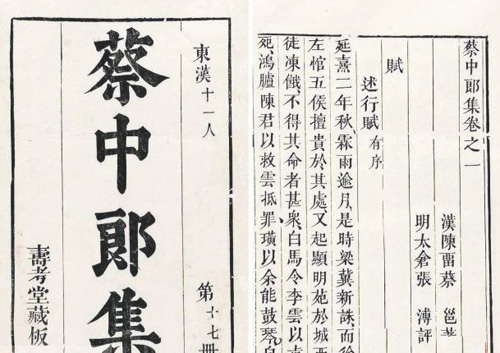 東漢十一人
蔡中郎集
第十七冊
壽考堂藏板
蔡中郎集卷之一
漢陳畱蔡 邕著
明太倉張 溥評
賦
述行賦有序
延熹二年秋霖雨逾月是時梁冀新誅而徐
左悺五侯擅貴於其處又起顯明苑於城西
徒凍餓不得其命者甚衆白馬令李雲以直
死鴻臚陳君以救雲抵罪璜以余能鼓琴白